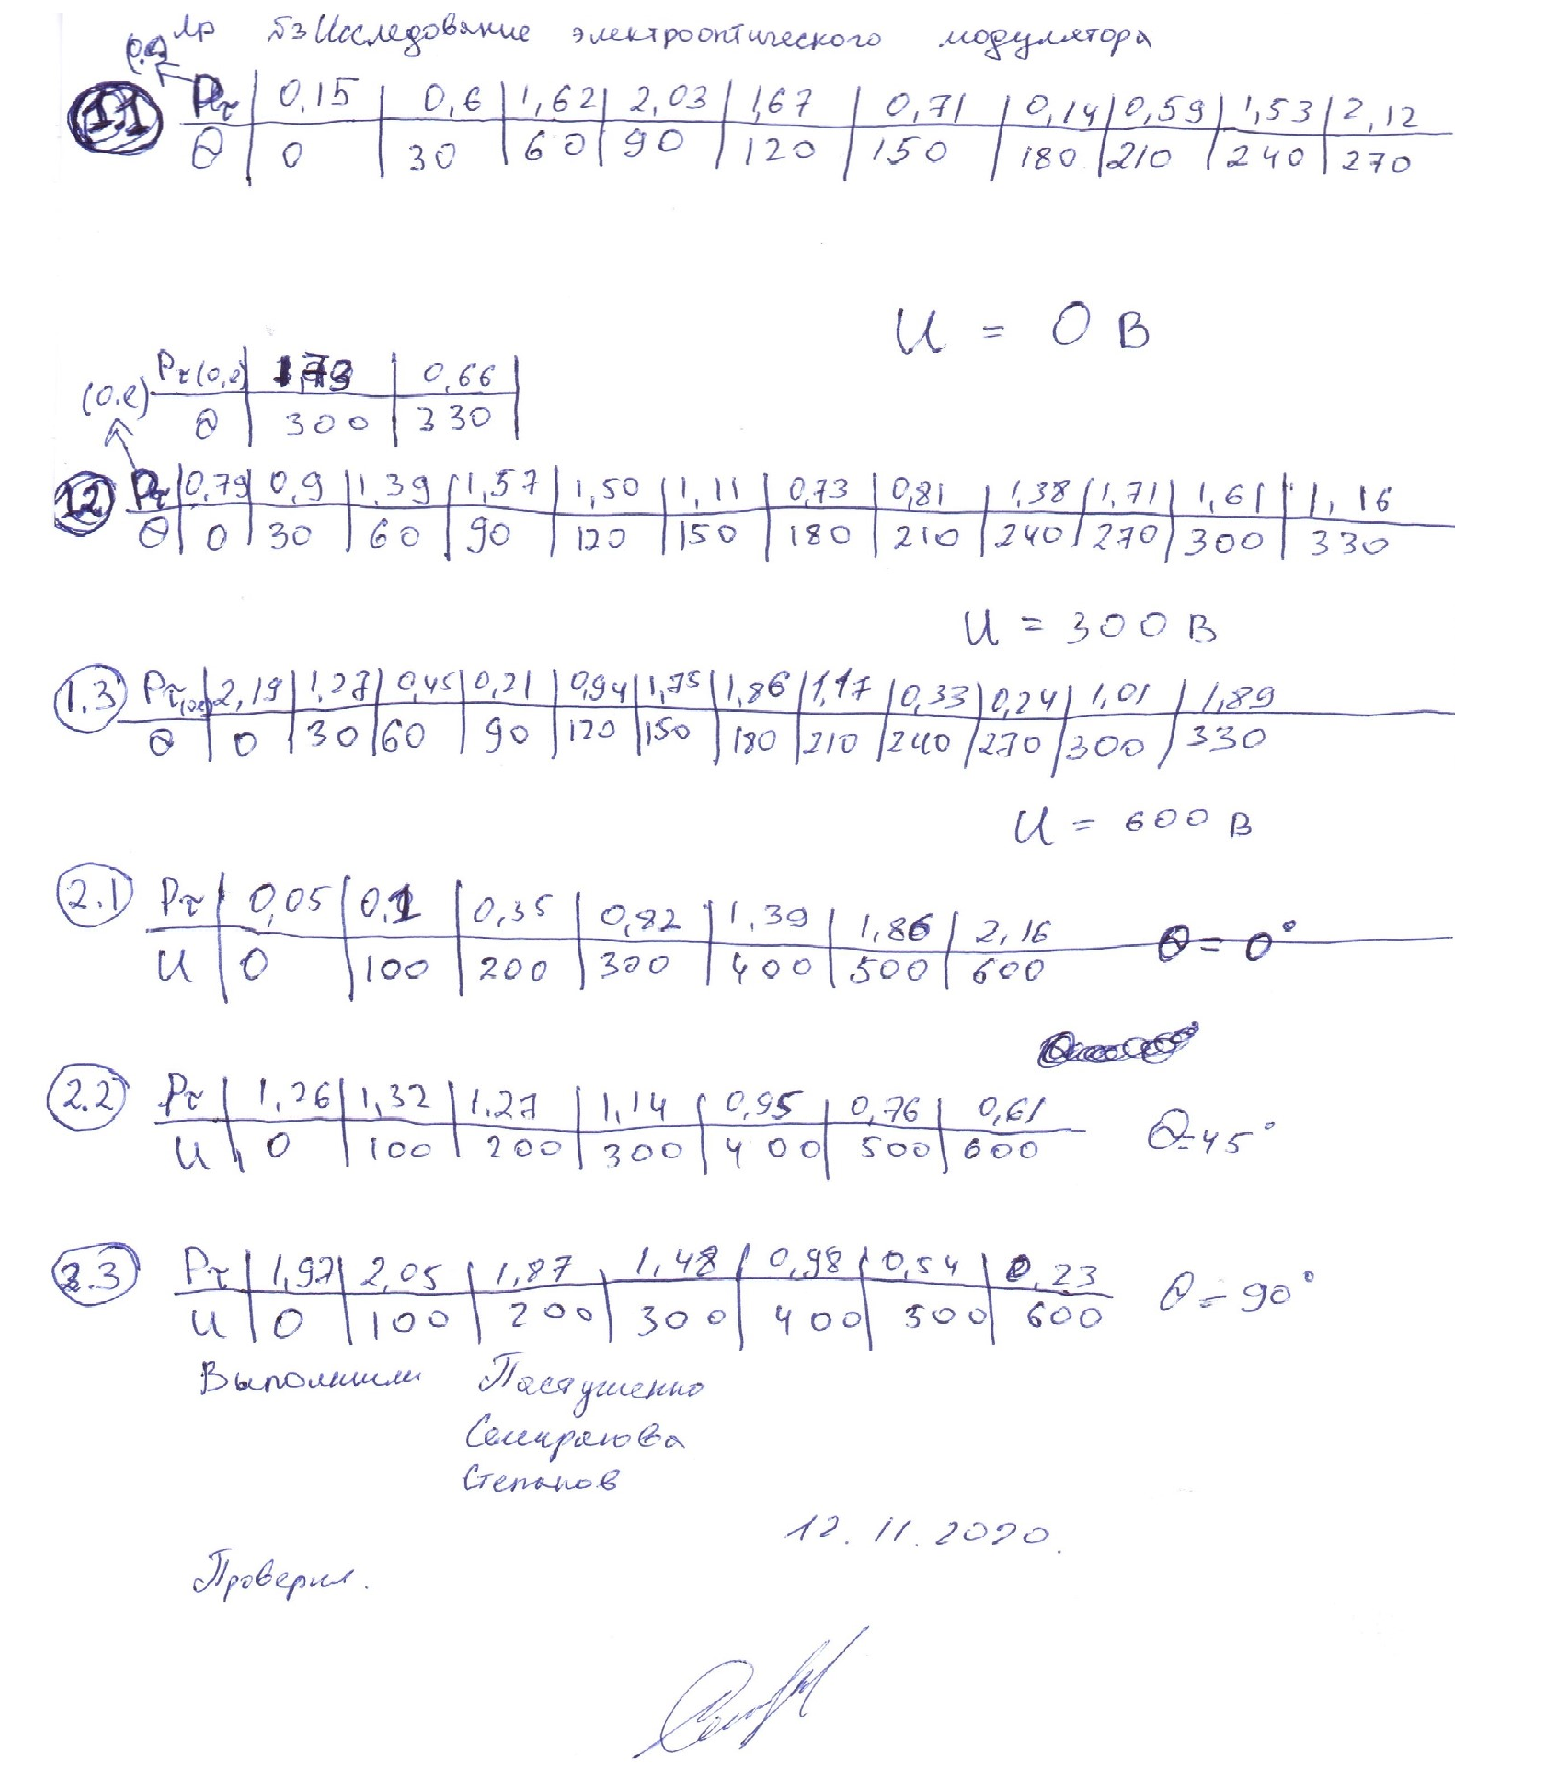 Лр №3 Исследование электрооптического модулятора
(о.е)
1.1 Pτ 0,15 0,6 1,62 2,03 1,67 0,71 0,14 0,59 1,53 2,12
Θ 0 30 60 90 120 150 180 210 240 270
U = 0 В
Pτ(о,е) 1,73 0,66
(о.е) Θ 300 330
1.2 Pτ 0,79 0,9 1,39 1,57 1,50 1,11 0,73 0,81 1,38 1,71 1,61 1,16
Θ 0 30 60 90 120 150 180 210 240 270 300 330
U = 300 В
1.3 Pτ(ое) 2,19 1,27 0,45 0,21 0,94 1,75 1,86 1,17 0,33 0,24 1,01 1,89
Θ 0 30 60 90 120 150 180 210 240 270 300 330
U = 600 В
2.1 Pτ 0,05 0,1 0,35 0,82 1,39 1,86 2,16 Θ = 0°
U 0 100 200 300 400 500 600
2.2 Pτ 1,26 1,32 1,27 1,14 0,95 0,76 0,61 Θ=45°
U 0 100 200 300 400 500 600
2.3 Pτ 1,97 2,05 1,87 1,48 0,98 0,54 0,23 Θ = 90°
U 0 100 200 300 400 500 600
Выполнили Пастушенко
Степанов
12.11.2020.
Проверил.